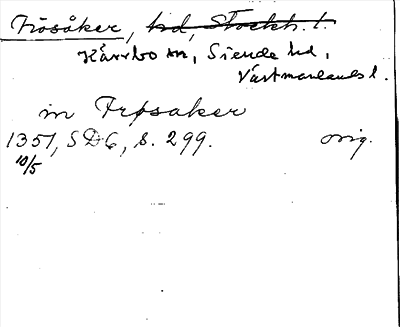 Frösåker, hd, Stockh. l.
Kärrbo sn, Siende hd,
Västmanlands l.
in Frøsaker
1351, SD6, s. 299. orig.
10/5